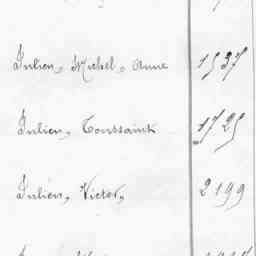 Julien, Michel, Anne 1537
Julien, Toussaint 1725
Julien, Victor, 2199